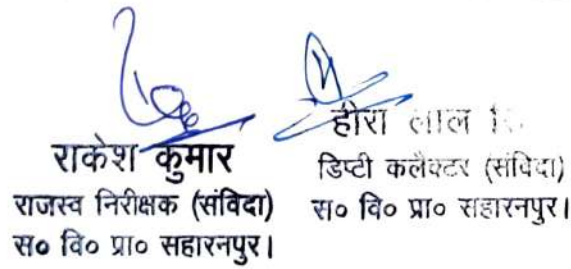 राकेश कुमार
राजस्व निरीक्षक (संविदा)
स० वि० प्रा० सहारनपुर।
हीरा लाल
डिप्टी कलैक्टर (संविदा)
स० वि० प्रा० सहारनपुर।